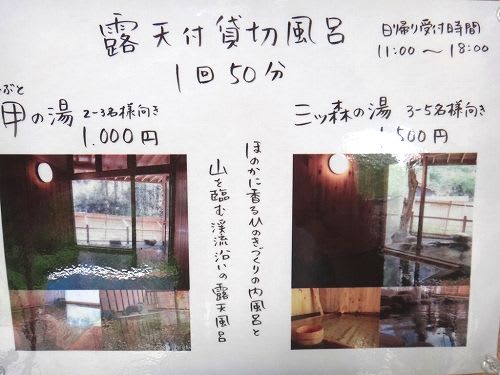 露天付貸切風呂
1回50分
日帰り受付時間
11:00～18:00
ぶと
甲の湯 2-3名様向き
1.000円
三ッ森の湯 3-5名様向き
1,500円
ほのかに香るひのきづくりの内風呂と
山を臨む渓流沿いの露天風呂